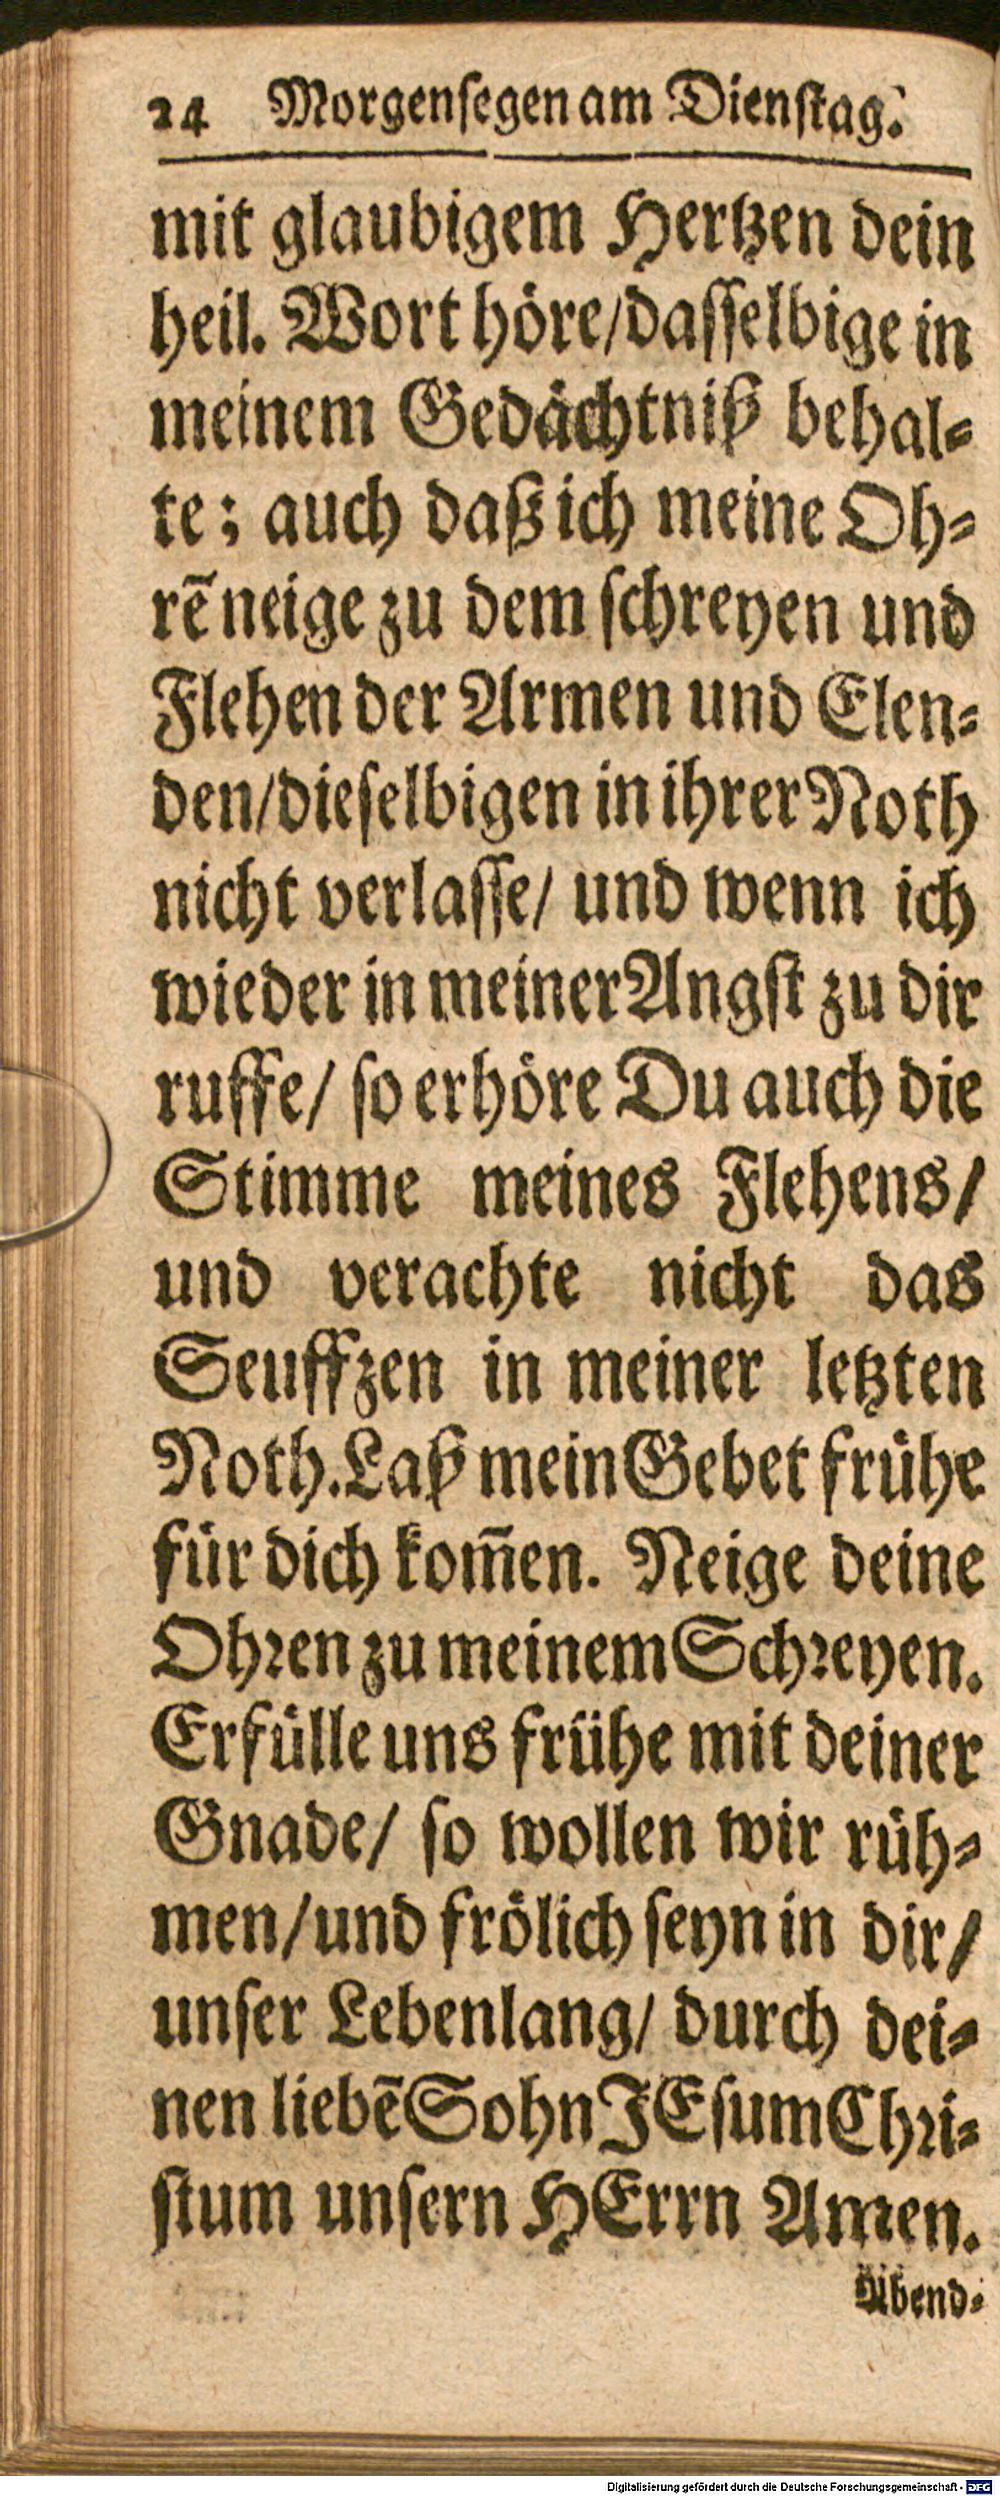 24 Morgensegen am Dienstag.
mit glaubigem Hertzen dein
heil. Wort höre/dasselbige in
meinem Gedächtniß behal-
te; auch daß ich meine Oh-
rē neige zu dem schreyen und
Flehen der Armen und Elen-
den/dieselbigen in ihrer Noth
nicht verlasse/ und wenn ich
wieder in meiner Angst zu dir
ruffe/ so erhöre Du auch die
Stimme meines Flehens/
und verachte nicht das
Seuffzen in meiner letzten
Noth. Laß mein Gebet frühe
für dich kom̃en. Neige deine
Ohren zu meinem Schreyen.
Erfülle uns frühe mit deiner
Gnade/ so wollen wir rüh-
men/und frölich seyn in dir/
unser Lebenlang/ durch dei-
nen liebē Sohn JEsum Chri-
stum unsern HErrn Amen.
Abend-
Digitalisierung gefördert durch die Deutsche Forschungsgemeinschaft - DFG